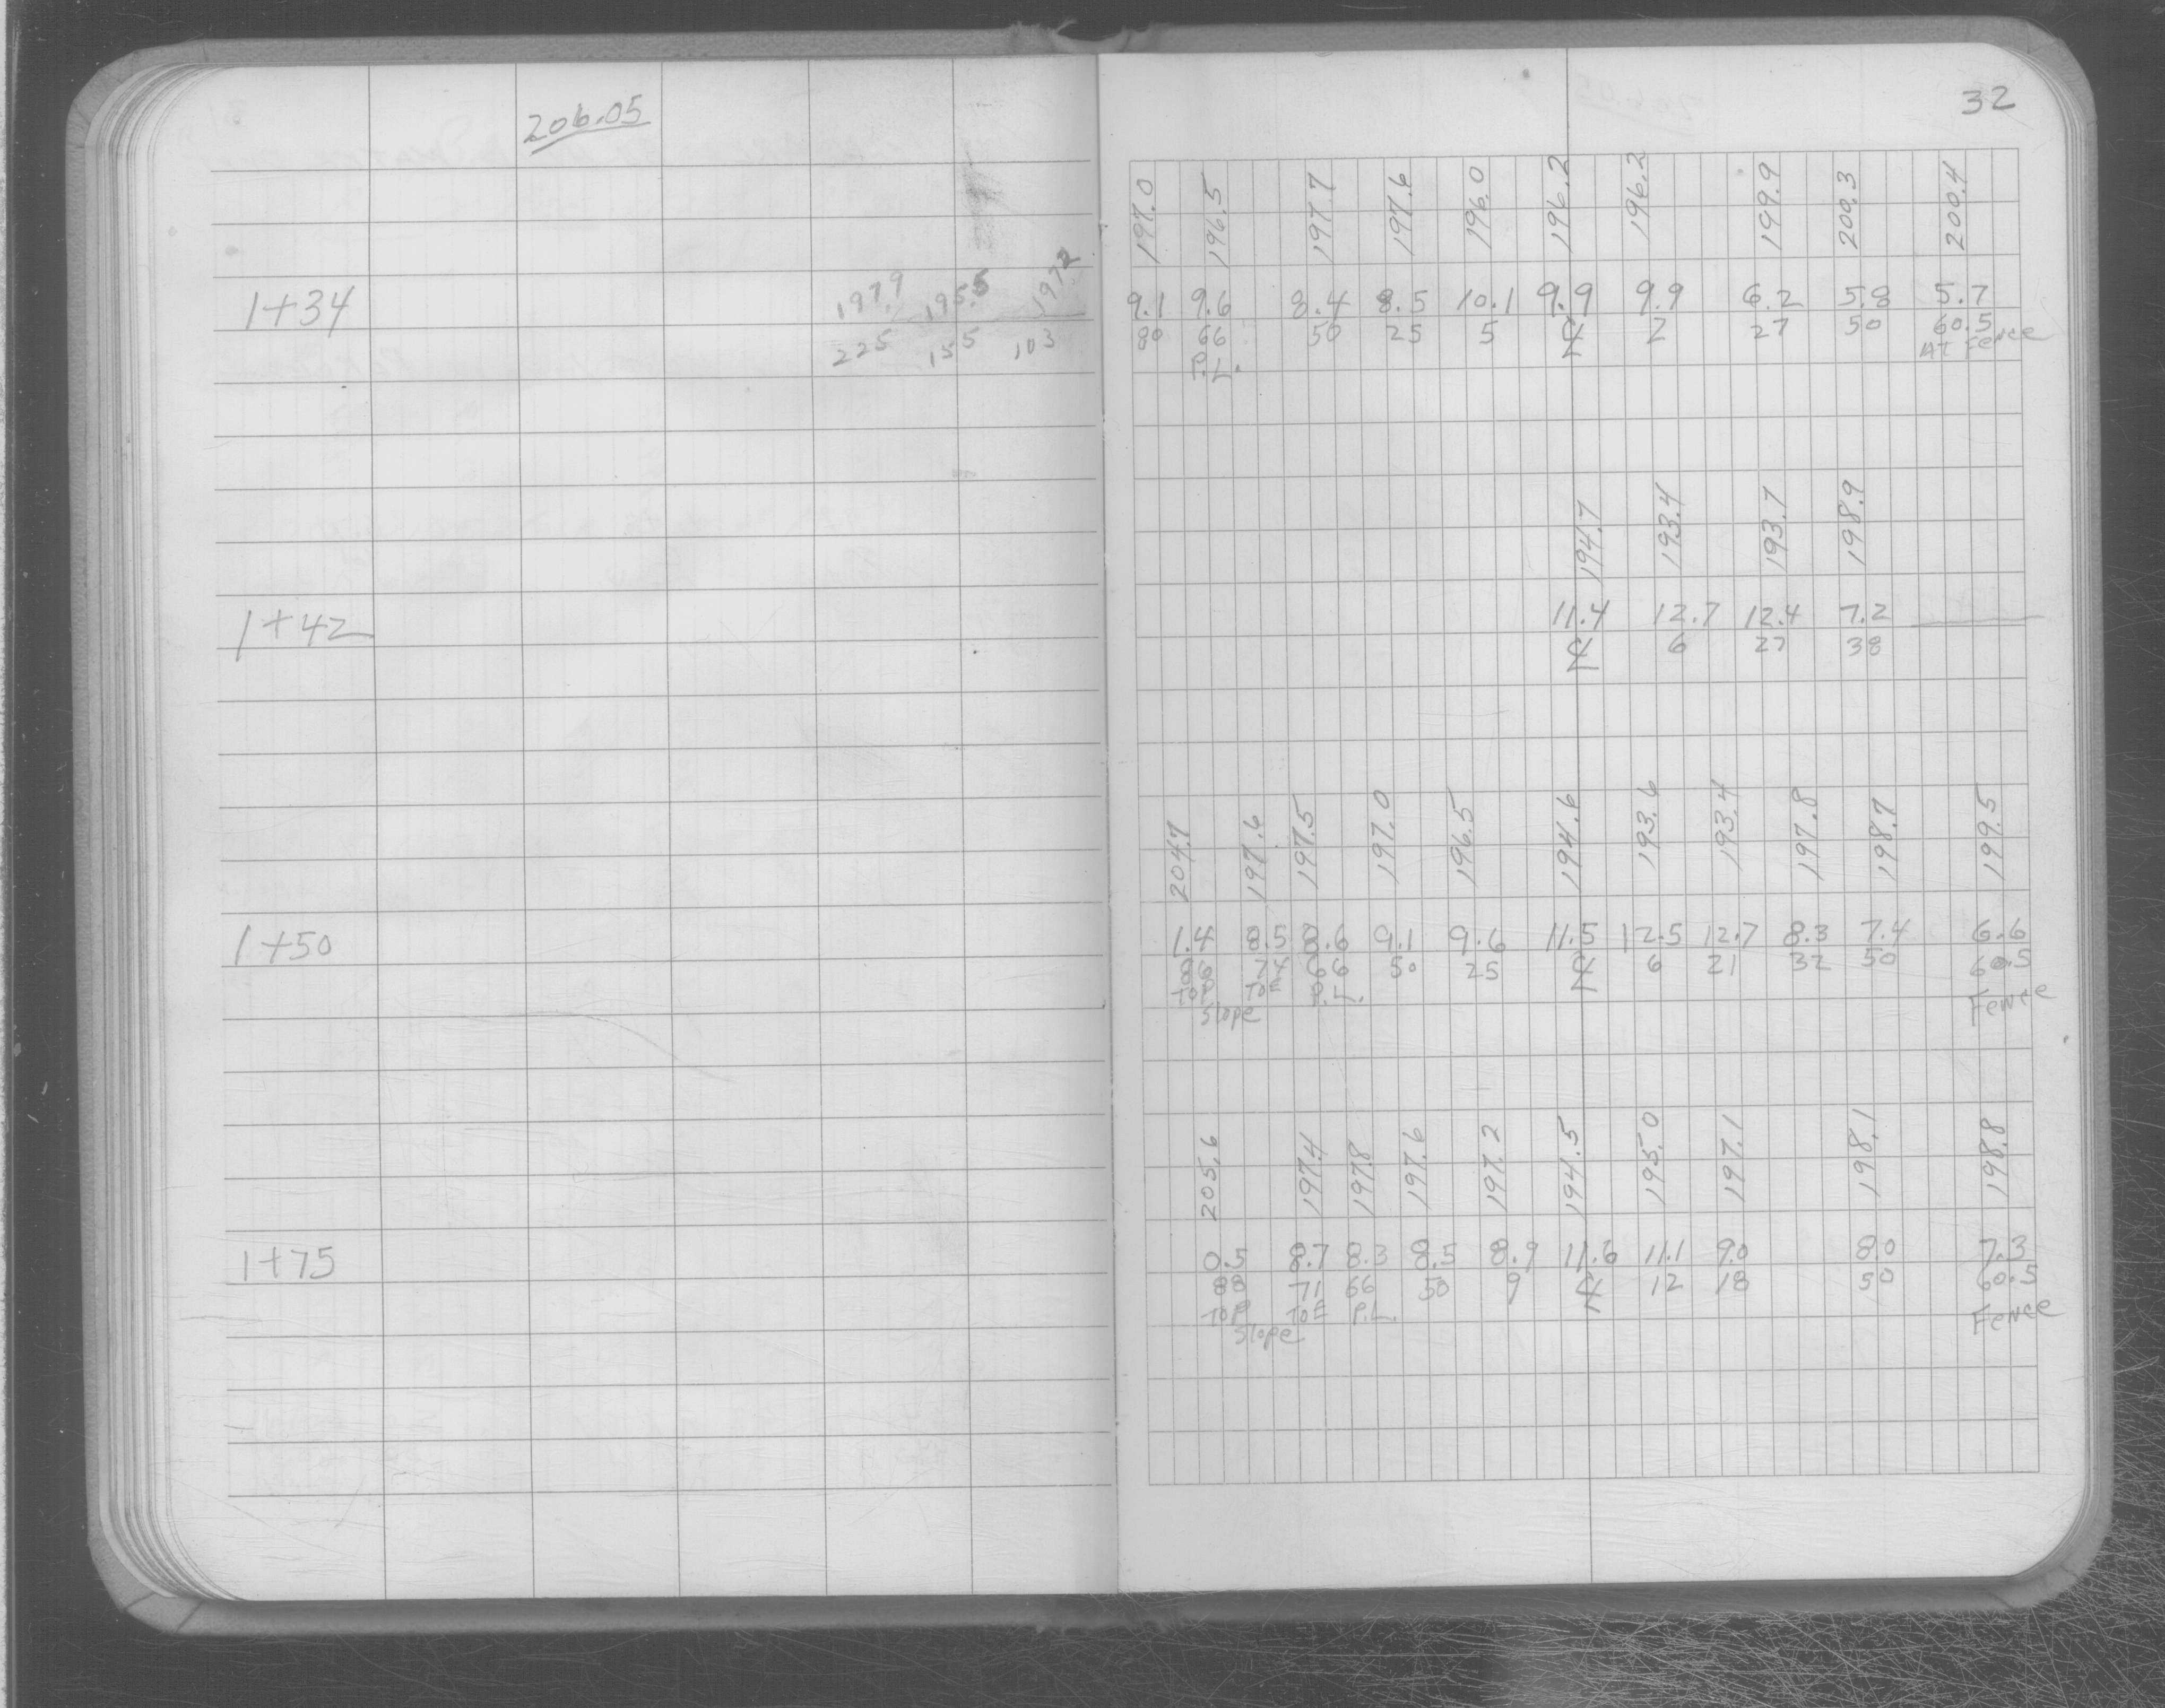 206.05
32
197.0 196.5 197.7 197.6 196.0 196.2 196.2 199.9 200.3 200.4
1+34 197.9 195.5 197.2 9.1 9.6 8.4 8.5 10.1 9.9 9.9 6.2 5.8 5.7
225 155 103 80 66 50 25 5 ℄ 2 27 50 60.5
P.L. AT Fence
194.7 193.4 193.7 198.9
1+42 11.4 12.7 12.4 7.2
℄ 6 27 38
204.7 197.6 197.5 197.0 196.5 194.6 193.6 193.4 197.8 198.7 199.5
1+50 1.4 8.5 8.6 9.1 9.6 11.5 12.5 12.7 8.3 7.4 6.6
86 74 66 50 25 ℄ 6 21 32 50 60.5
TOP TOE P.L. Fence
Slope
205.6 197.4 197.8 197.6 197.2 194.5 195.0 197.1 198.1 198.8
1+75 0.5 8.7 8.3 8.5 8.9 11.6 11.1 9.0 8.0 7.3
88 71 66 50 9 ℄ 12 18 50 60.5
TOP TOE P.L. Fence
Slope